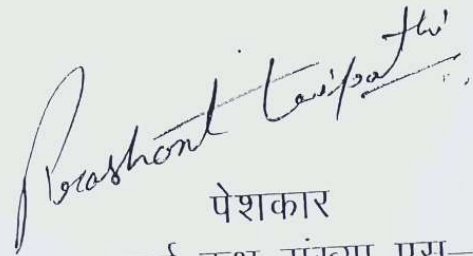 Prashant Tripathi
पेशकार
कक्ष संख्या एस–